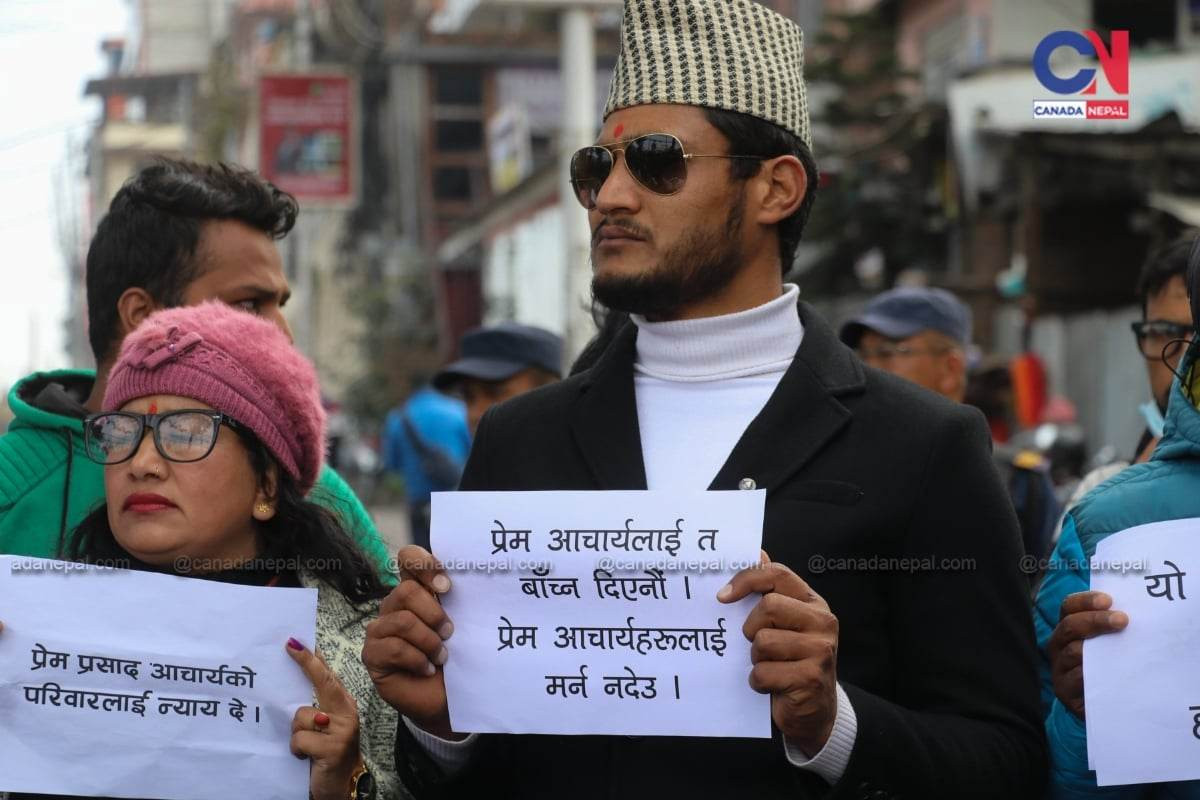 CN
CANADA NEPAL
प्रेम आचार्यलाई त
बाँच्न दिएनौं ।
प्रेम आचार्यहरूलाई
मर्न नदेउ ।
प्रेम प्रसाद आचार्यको
परिवारलाई न्याय दे ।
यो
ह
adanepal.com @canadanepal.com @canadanepal.com @canadanepal.com @canadanepal.com